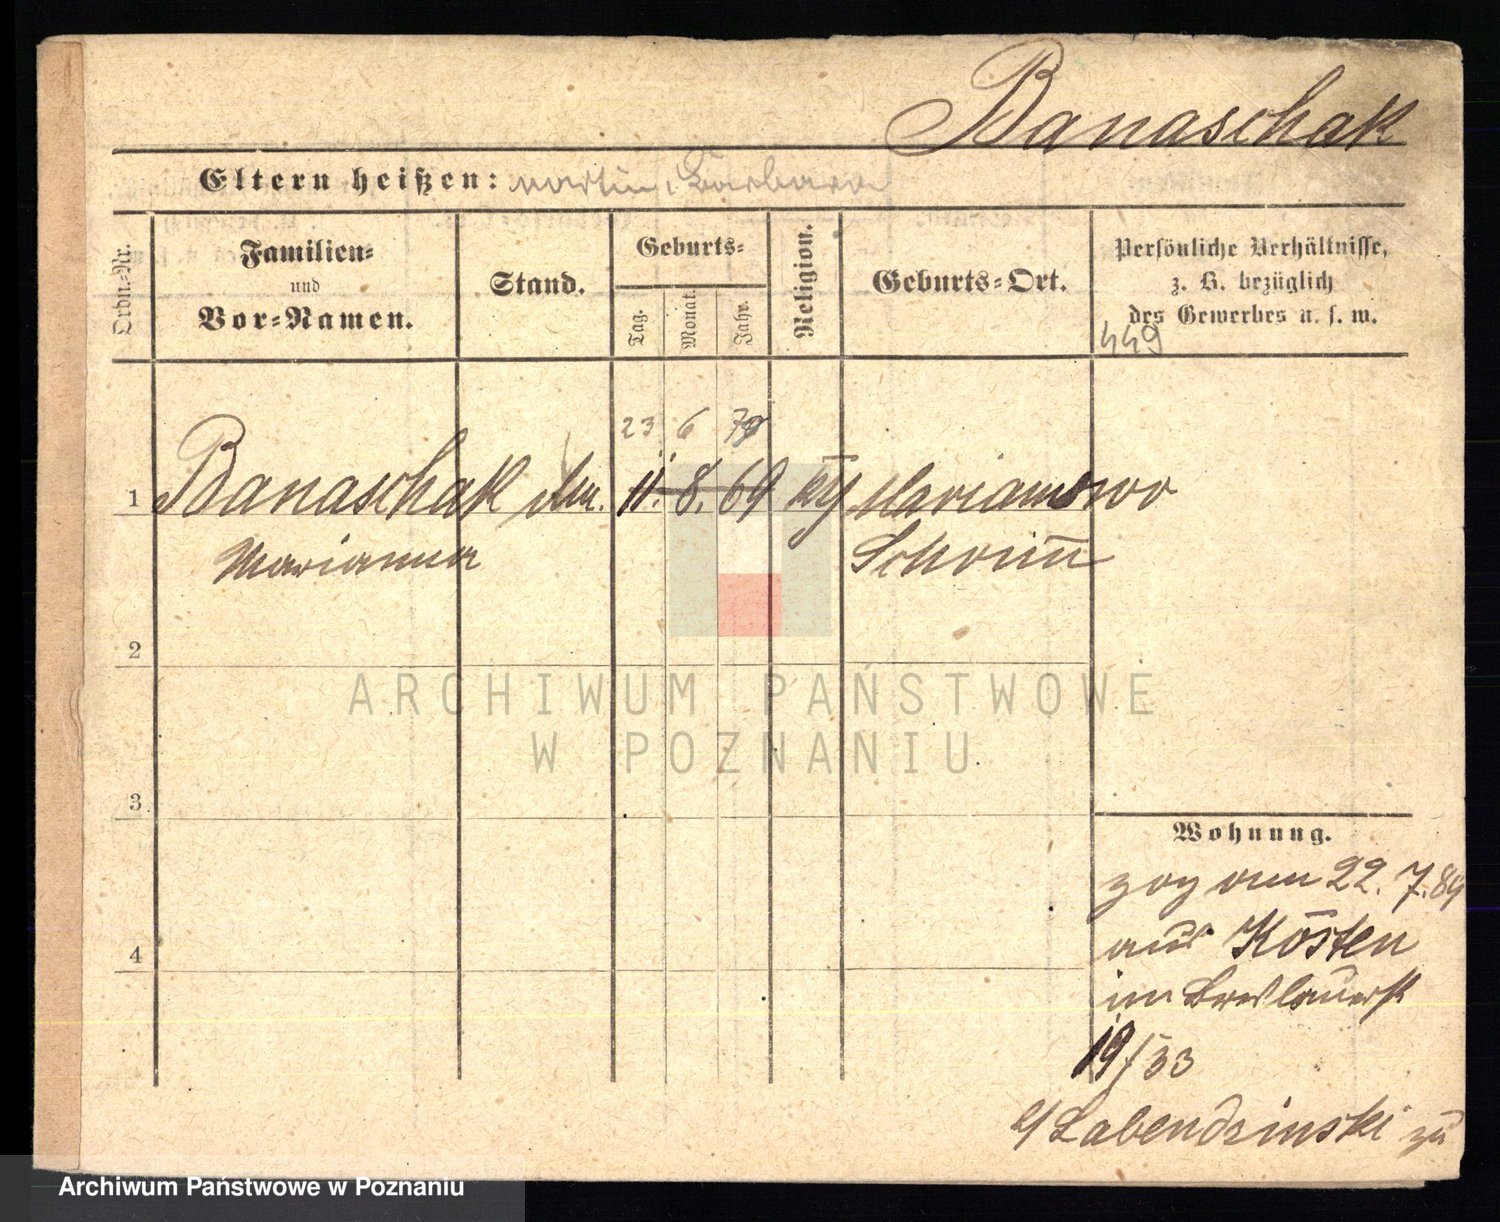 Banaschak
Eltern heißen: Martin, Barbara
Ordn.-Nr.
Familien-
und
Vor-Namen.
Stand.
Geburts-
Tag.
Monat.
Jahr.
Religion.
Geburts-Ort.
Persönliche Verhältnisse,
z. B. bezüglich
des Gewerbes u. s. w.
449
23 6
1 Banaschak 11. 8. 69 Marianowo
Marianna Schrimm
2
3
4
Wohnung.
zog am 22. 7. 89
aus Kosten
in Breslauerst
19/33
b/ Labendzinski zu
ARCHIWUM PAŃSTWOWE
W POZNANIU
Archiwum Państwowe w Poznaniu